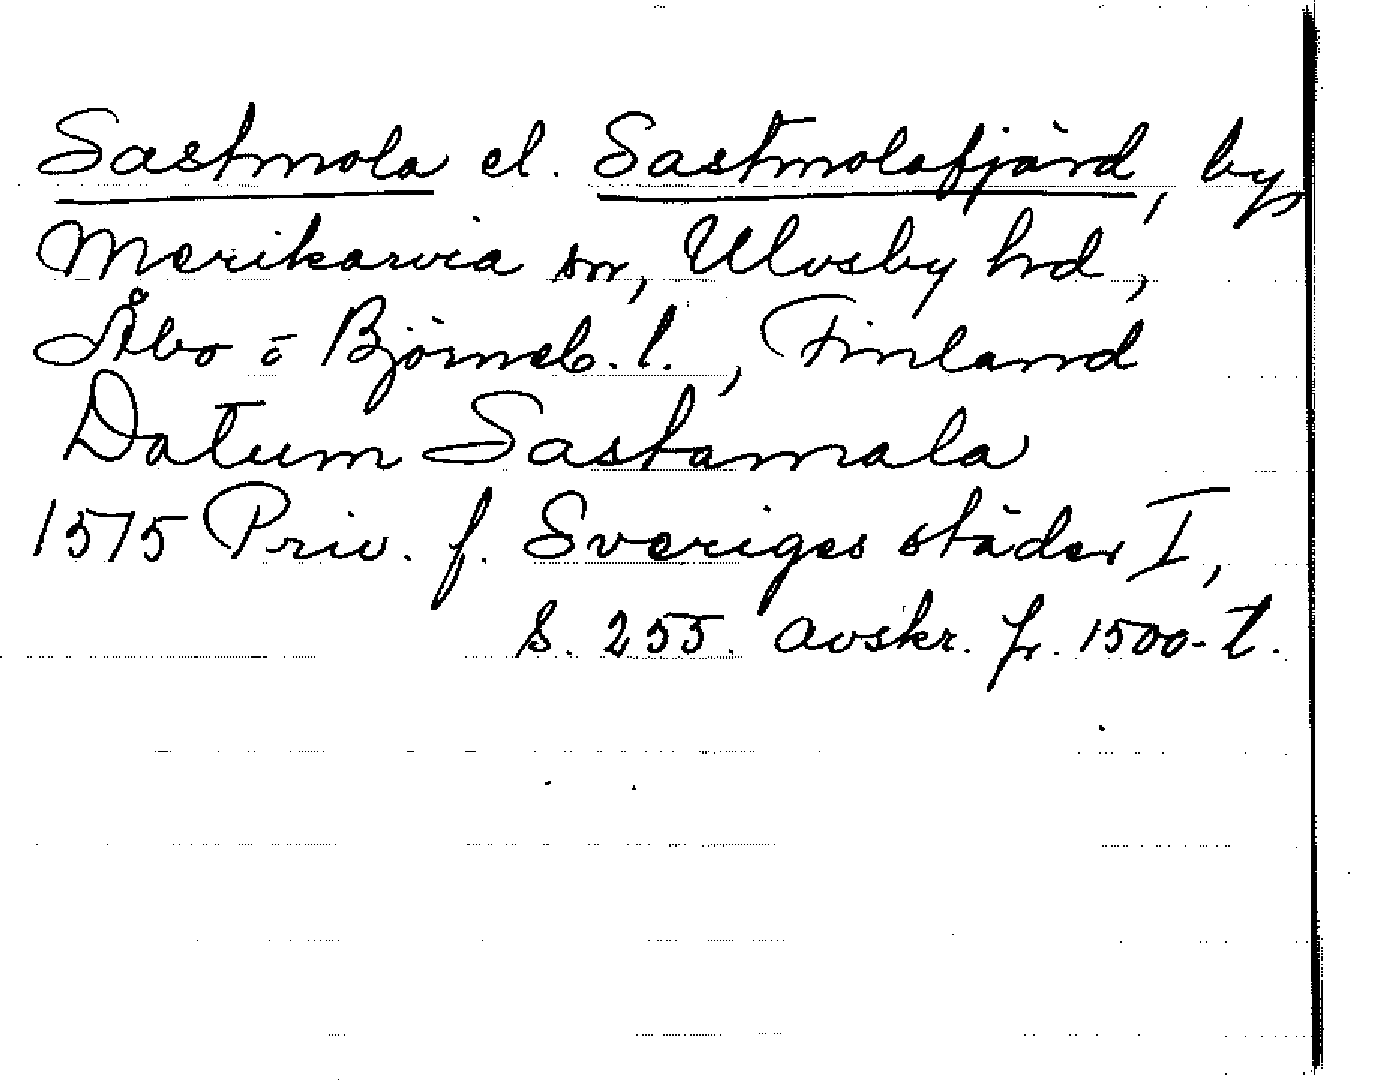 Sastmola el. Sastmolafjärd, by
Merikarvia sn, Ulvsby hd,
Åbo o Björneb. l., Finland
Datum Sastamala
1575 Priv. f. Sveriges städer I,
s. 255. avskr. fr. 1500-t.